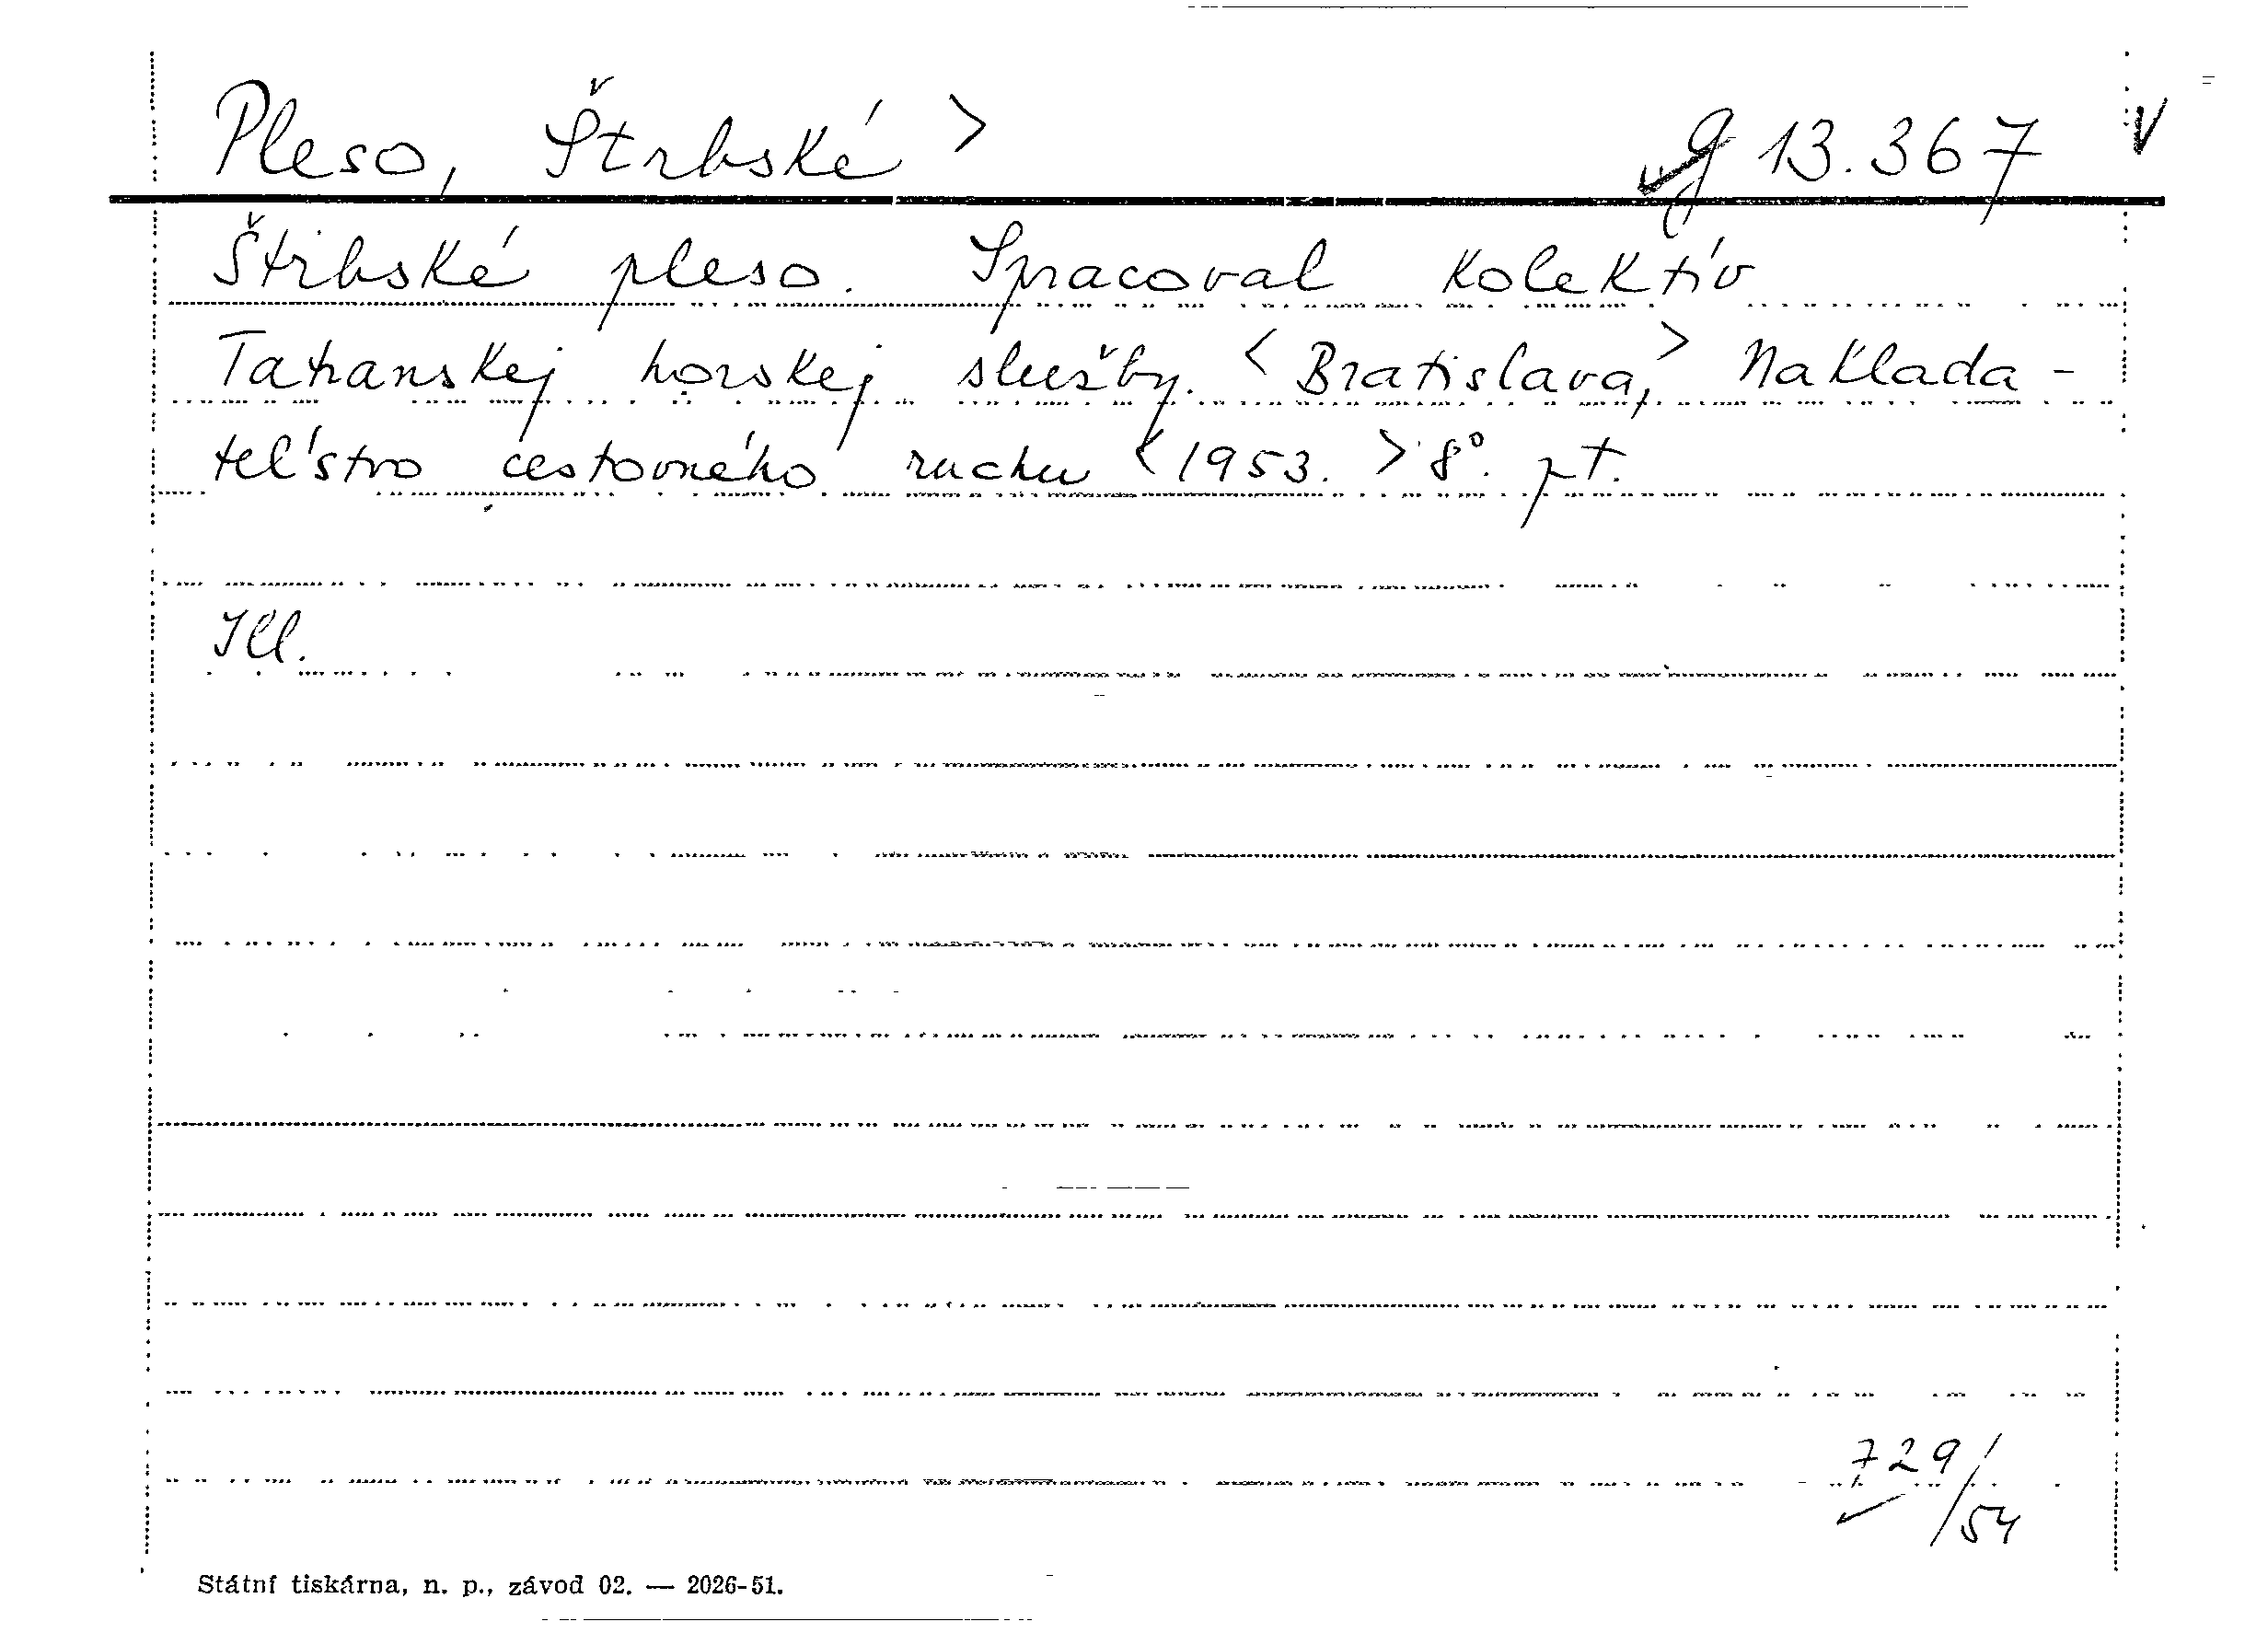 Pleso, Štrbské > g 13.367 V
Štrbské pleso. Spracoval kolektív
Tatranskej horskej služby. <Bratislava,> Naklada-
teľstvo cestovného ruchu <1953.> 8°. pt.
Ill.
729/54
Státní tiskárna, n. p., závod 02. — 2026-51.